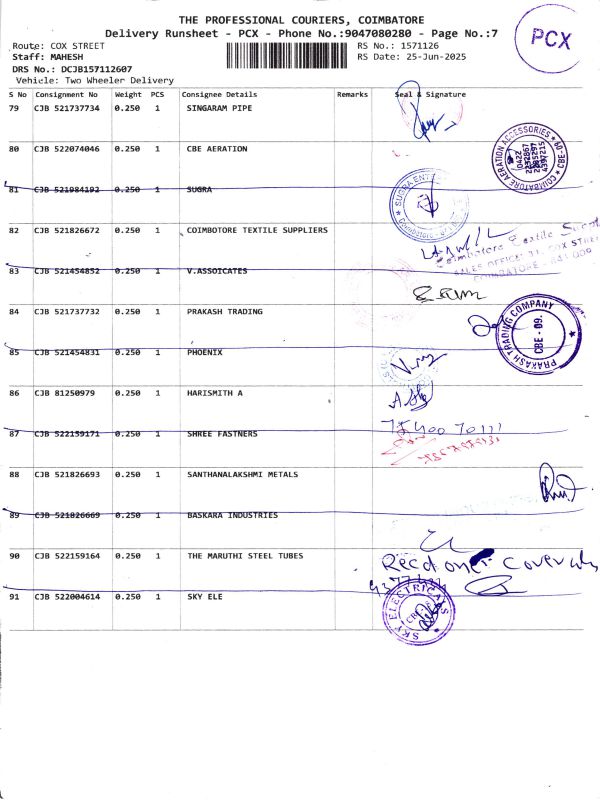 THE PROFESSIONAL COURIERS, COIMBATORE
Delivery Runsheet - PCX - Phone No.:9047080280 - Page No.:7
PCX
Route: COX STREET
RS No.: 1571126
Staff: MAHESH
RS Date: 25-Jun-2025
DRS No.: DCJB157112607
Vehicle: Two Wheeler Delivery
S No Consignment No Weight PCS Consignee Details Remarks Seal & Signature
79 CJB 521737734 0.250 1 SINGARAM PIPE
80 CJB 522074046 0.250 1 CBE AERATION
COIMBATORE AERATION ACCESSORIES
CBE-09
0422
81 CJB 521984192 0.250 1 SUGRA
SUGRA ENT
Coimbatore
82 CJB 521826672 0.250 1 COIMBOTORE TEXTILE SUPPLIERS
Coimbatore Textile
SALES OFFICE: 31, COX STREET
COIMBATORE - 641 009
83 CJB 521454852 0.250 1 V.ASSOICATES
84 CJB 521737732 0.250 1 PRAKASH TRADING
PRAKASH TRADING COMPANY
CBE - 09.
85 CJB 521454831 0.250 1 PHOENIX
86 CJB 81250979 0.250 1 HARISMITH A
87 CJB 522159171 0.250 1 SHREE FASTNERS
88 CJB 521826693 0.250 1 SANTHANALAKSHMI METALS
89 CJB 521826669 0.250 1 BASKARA INDUSTRIES
90 CJB 522159164 0.250 1 THE MARUTHI STEEL TUBES
Recd one cover
91 CJB 522004614 0.250 1 SKY ELE
SKY ELECTRICALS
CBE